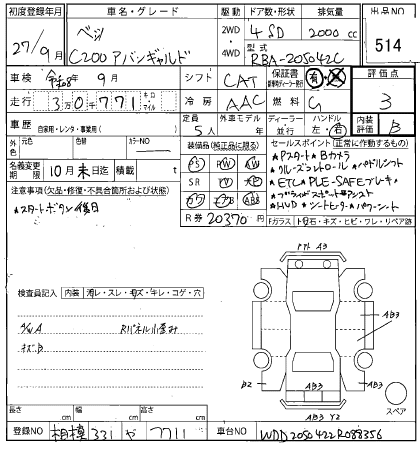 初度登録年月
車名・グレード
駆動
ドア数・形状
排気量
出品NO
27/9月
ベンツ
C200 アバンギャルド
2WD
4WD
4 SD
2000 cc
型式
RBA-205042C
514
車検
9月
シフト
CAT
保証書
有
評価点
3
走行
3万0千771
キロ
マイル
冷房
AAC
燃料
G
車歴
自家用・レンタ・事業用( )
定員
5人
外車モデル
年
ディーラー
並行
ハンドル
左・右
内装評価
B
外色
元色
色替
カラーNO
装備品(純正品に限る)
セールスポイント(正常に作動するもの)
名義変更期限
10月末日迄
積載
t
PS
PW
AW
SR
TV
ナビ
ABS
R券 20370 円
★Pスタート★Bカメラ
★クルーズコントロール★パドルシフト
★ETC★PLE-SAFEブレーキ
★ブラインドスポットアシスト
★HUD★シートヒーター★パワーシート
Fガラス トビ石・キズ・ヒビ・ワレ・リペア跡
注意事項(欠品・修復・不具合箇所および状態)
★スタートボタン後日
検査員記入
内装
汚レ・スレ・キズ・キレ・コゲ・穴
Rパネル小歪み
キズB
A3
AB3
B2
AB3
AB3 Y2
スペア
長さ
cm
幅
cm
高さ
cm
登録NO
相模 331 や 7711
車台NO
WDD2050422R088356